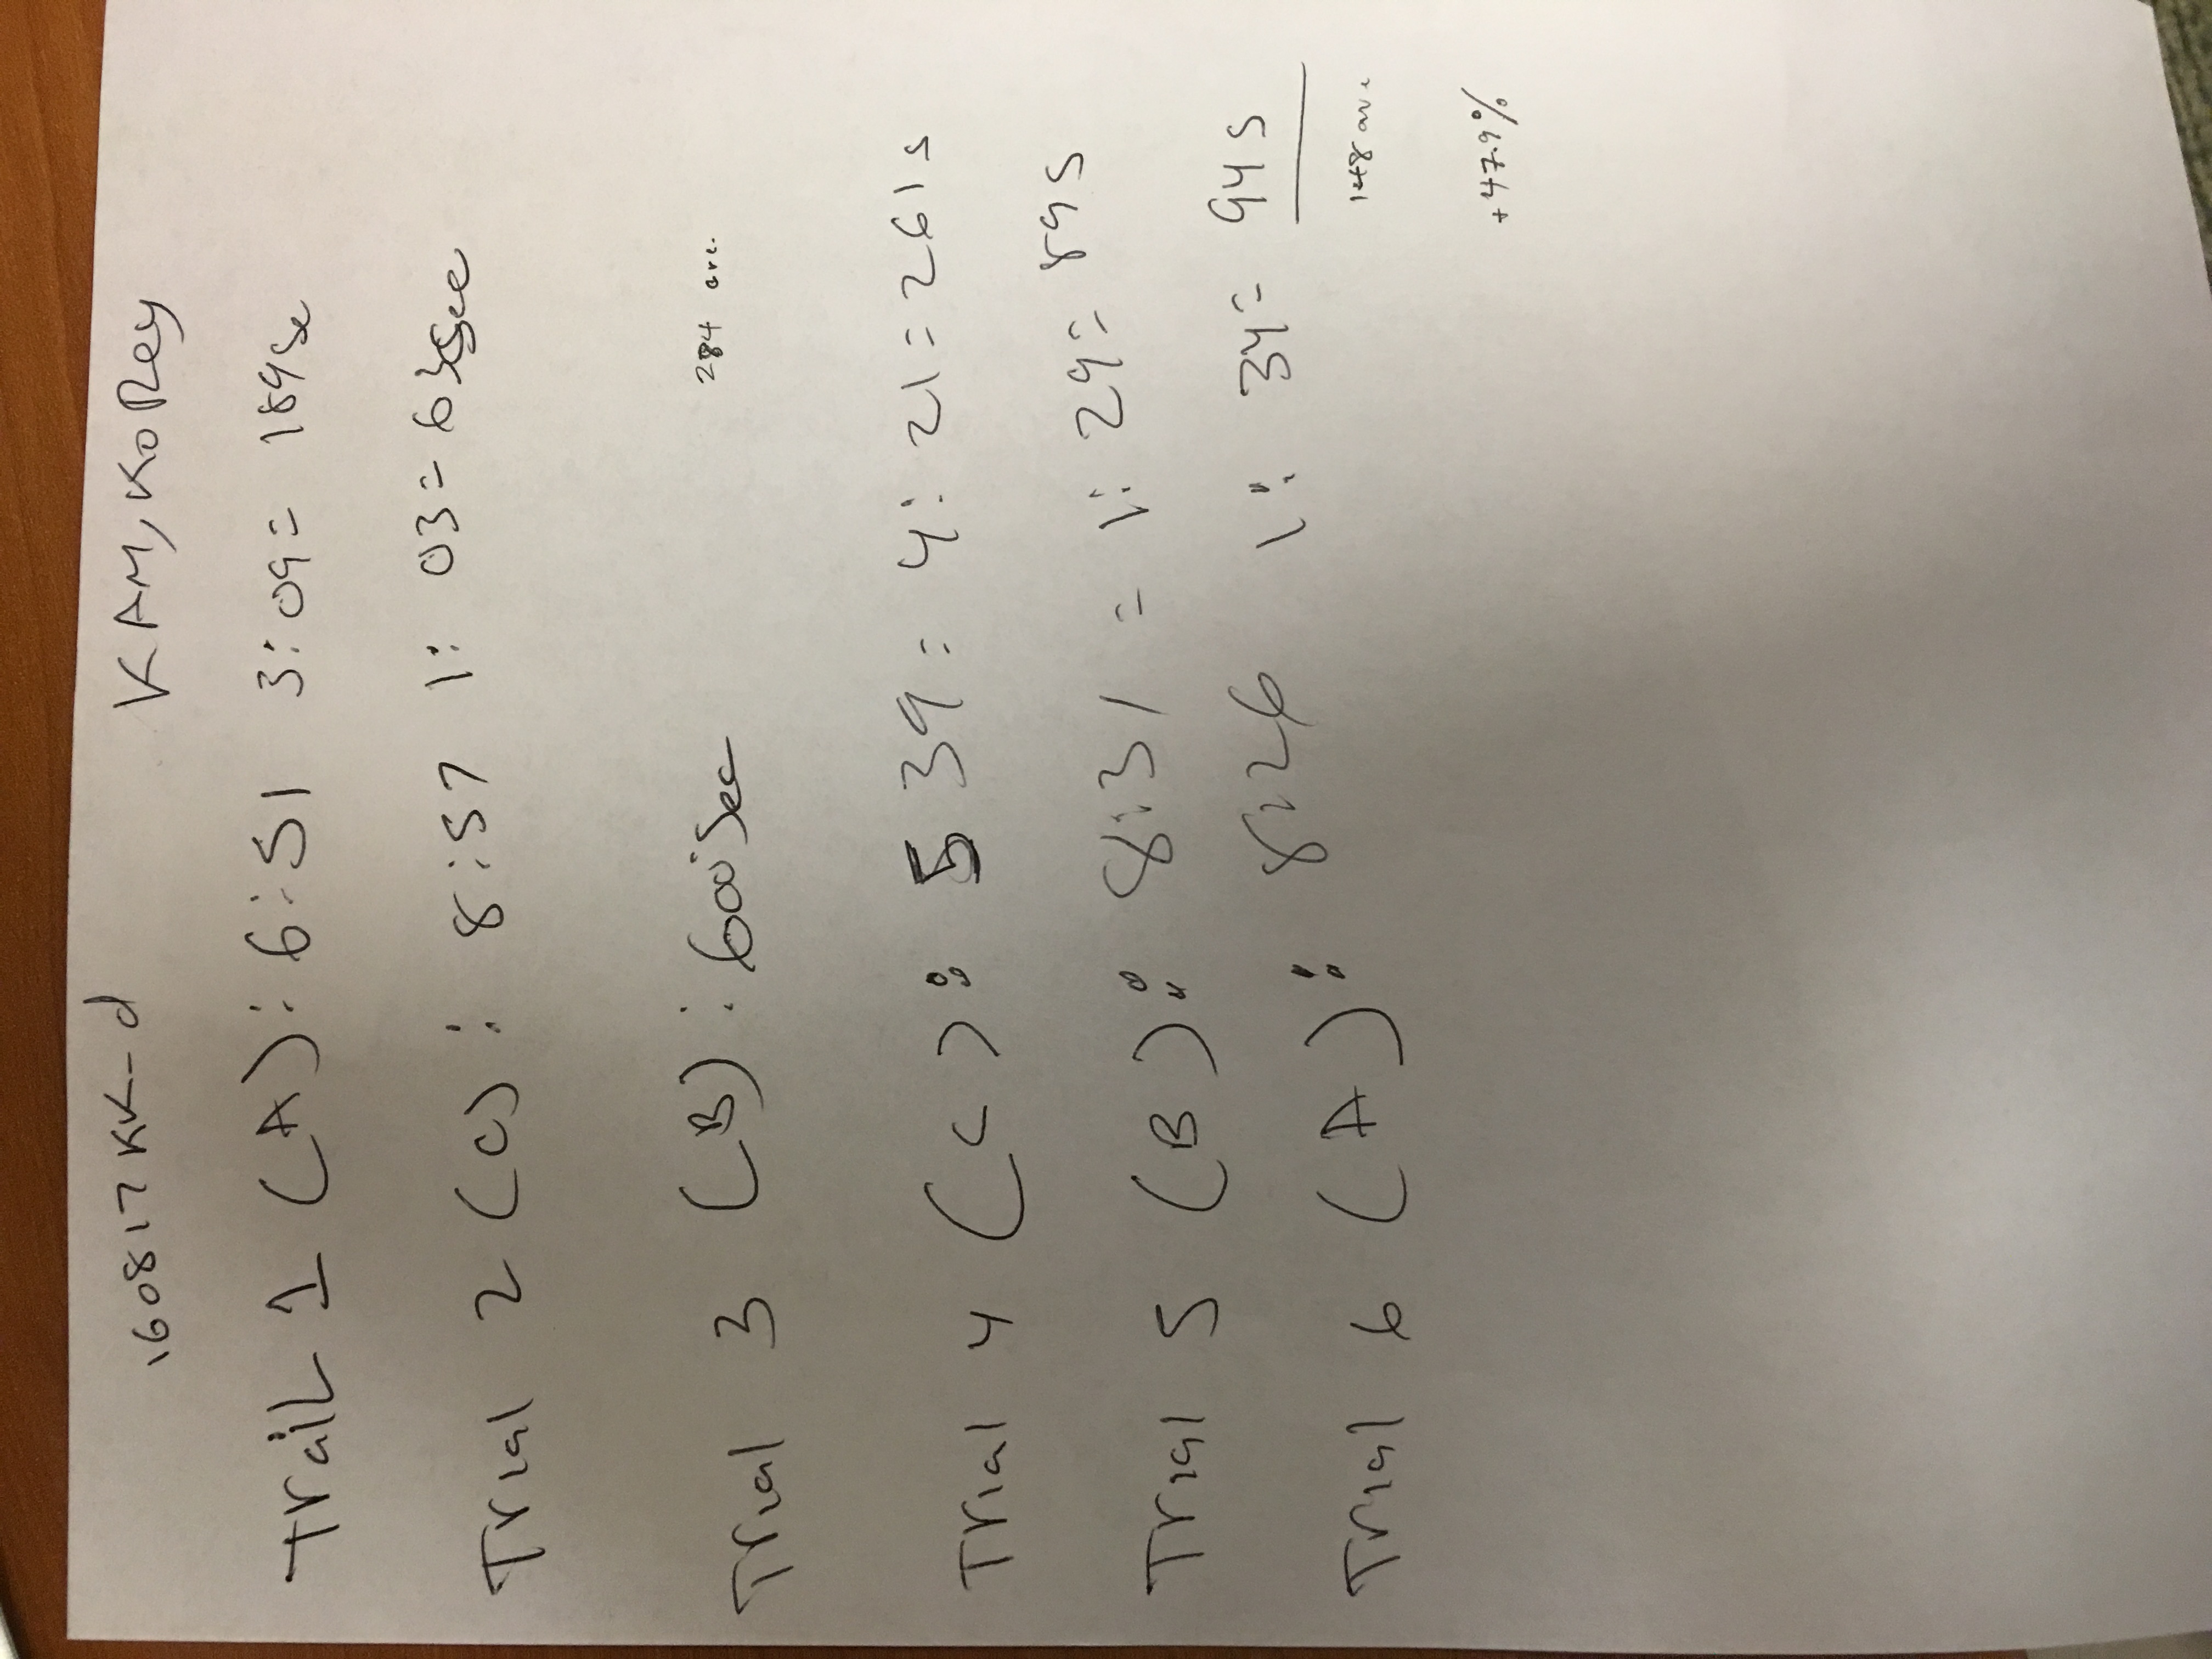 160817KK-d KAM, KoRey
TraiL 1 (A): 6:51 3:09= 189 Se
Trial 2 (C): 8:57 1: 03= 63 Sec
Trial 3 (B): 600 Sec
284 ave.
Trial 4 (C): 5 39= 4: 21= 261s
Trial 5 (B): 8:31 = 1: 29= 89s
Trial 6 (A): 8:26 1: 34= 94s
148 ave
+47.9%